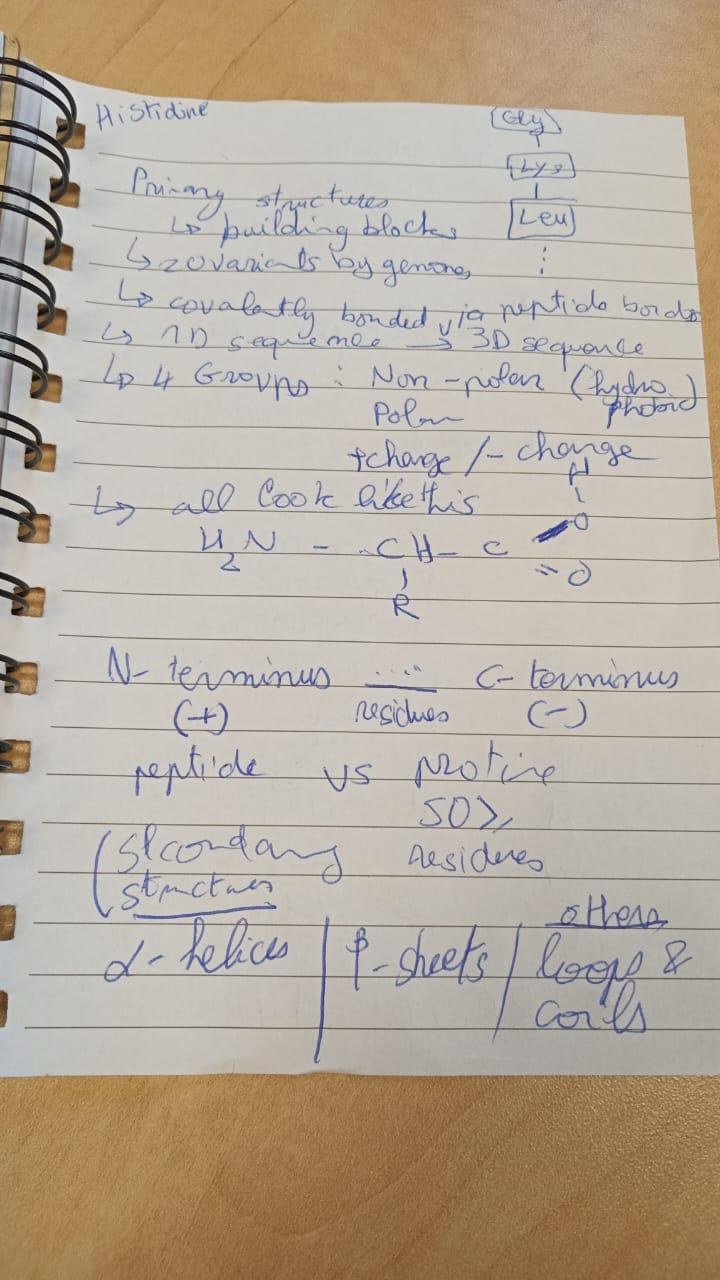 Histidine
Gly
Lys
Leu
Primary structures
↳ building blocks
↳ 20 variants by genome
↳ covalently bonded via peptide bonds
↳ 1D sequence → 3D sequence
↳ 4 Groups : Non-polar (hydro phobic)
Polar
+charge /- charge
↳ all look like this
H
H₂N - CH - C - O
= O
R
N- terminus ..... C- terminus
(+) residues (-)
peptide vs protine
50>,
resideres
Secondary
structures
others
α- helices | β-sheets | loops &
coils